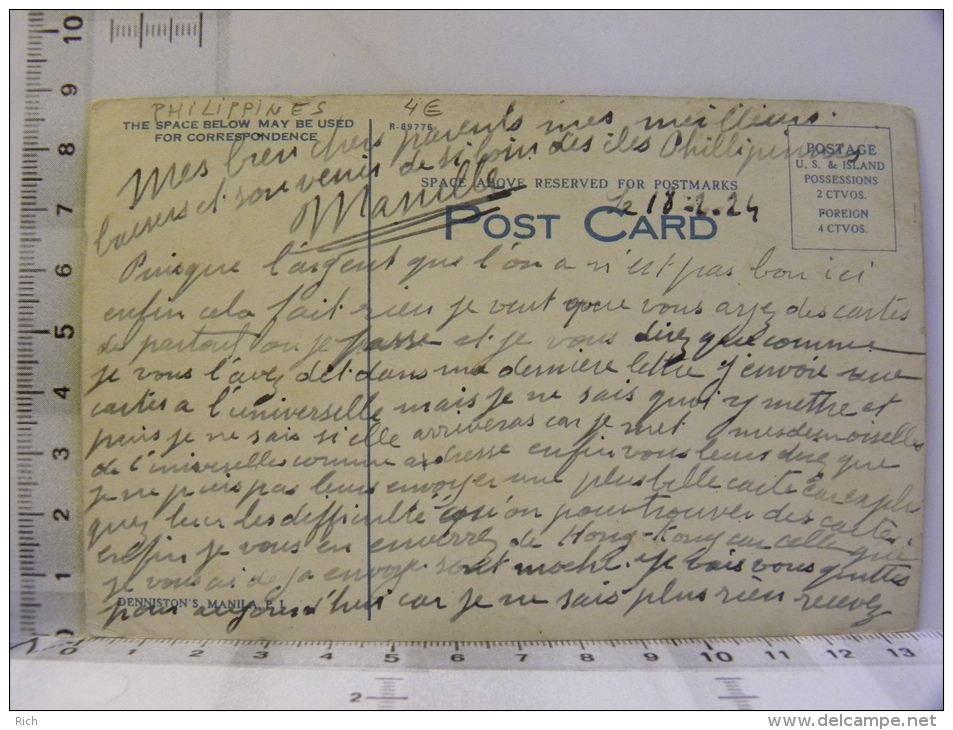 PHILIPPINES 4E
THE SPACE BELOW MAY BE USED
FOR CORRESPONDENCE
R-89776
POSTAGE
U. S. & ISLAND
POSSESSIONS
2 CTVOS.
FOREIGN
4 CTVOS.
SPACE ABOVE RESERVED FOR POSTMARKS
POST CARD
Manille
Le 18-2-24
Recevez mes bien chers parents mes meilleurs
baisers et souvenir de si loin des iles Phillipinnes
Puisque l'argent que l'on a n'est pas bon ici
enfin cela fait rien je veut que vous ayez des cartes
de partout ou je passe et je vous direz que comme
je vous l'avez dit dans ma dernière lettre j'envoie une
cartes a l'universelle mais je ne sais quoi y mettre et
puis je ne sais si elle arriveras car je met mesdemoiselles
de l'universelles comme adresse enfin vous leurs direz que
je ne puis pas leurs envoyer une plus belle carte car expli
quez leur les difficulté qu'on pour trouver des cartes.
enfin je vous en enverrez de Hong-Kong car celle que
je vous ai deja envoye sont moche. je vais vous quittes
pour aujourd'hui car je ne sais plus rien recevez
DENNISTON'S, MANILA, P. I.
0 1 2 3 4 5 6 7 8 9 10 11 12 13
1 2 3 4 5 6 7 8 9 10
2
Rich
http://www.delcampe.net